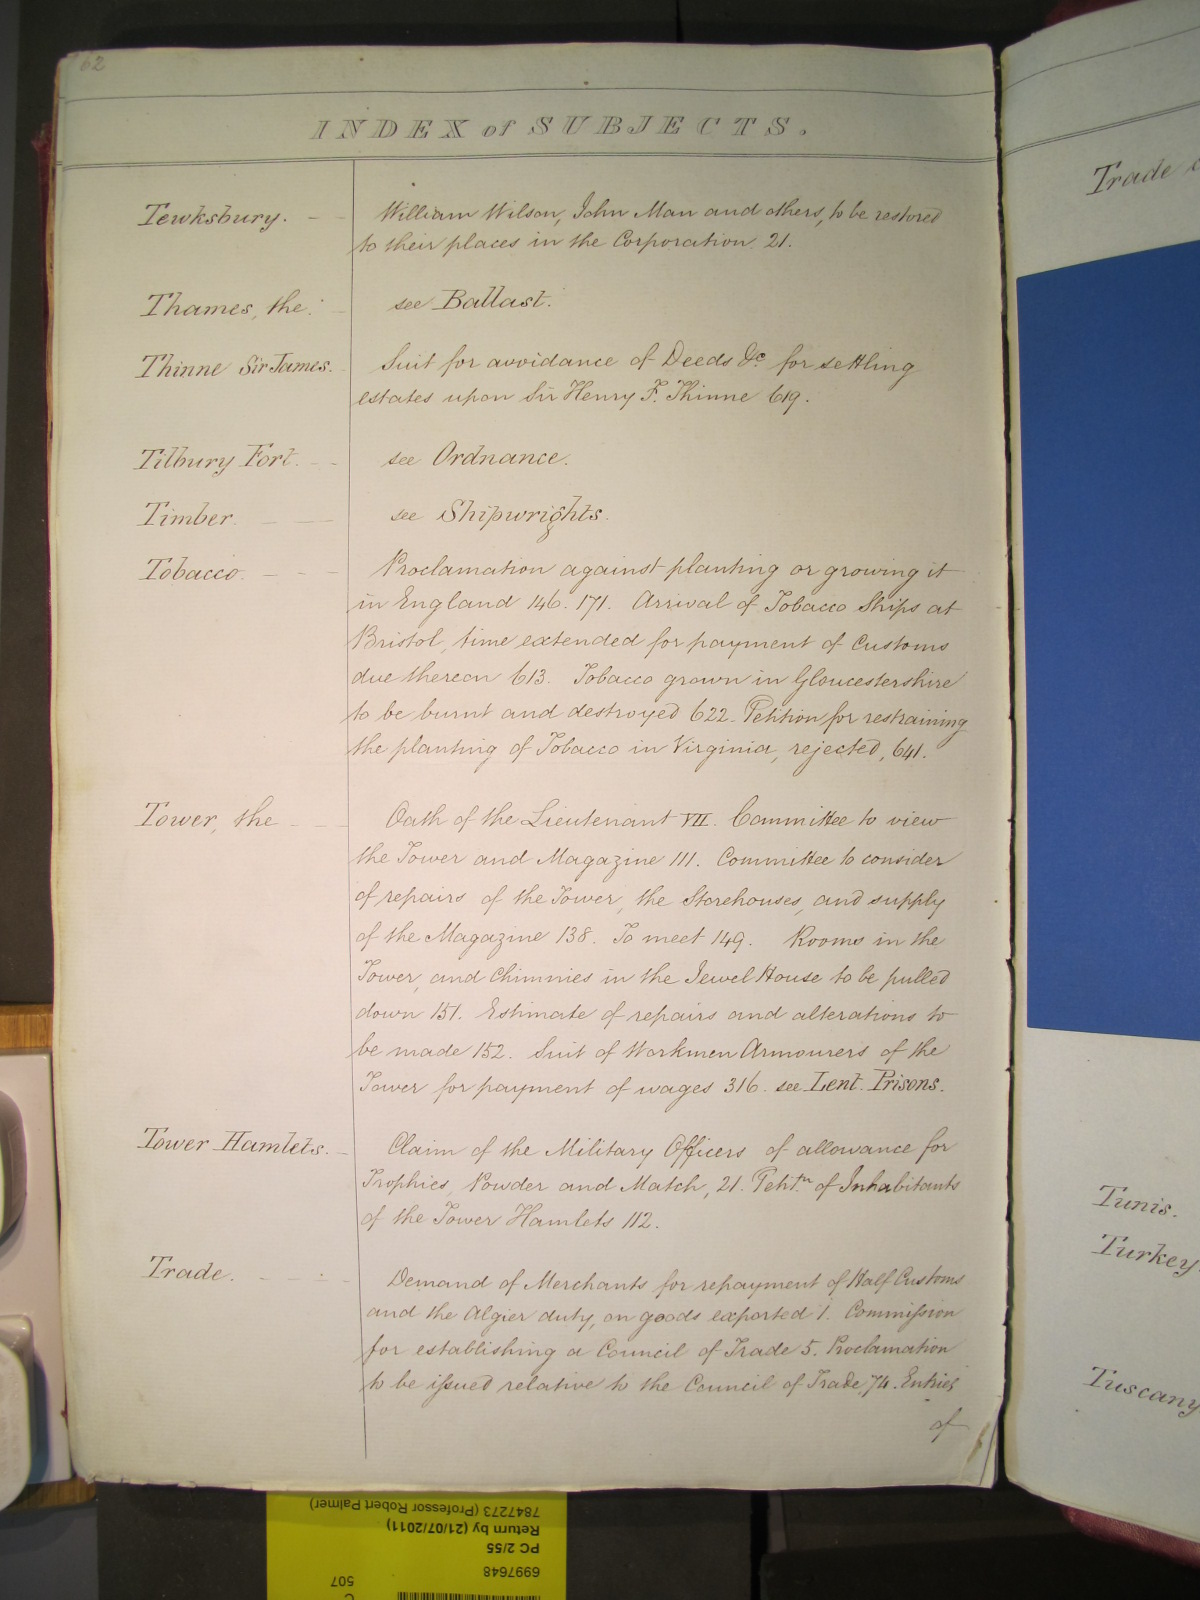 62
INDEX of SUBJECTS.
Tewksbury. William Wilson, John Man and others, to be restored
to their places in the Corporation 21.
Thames, the. see Ballast.
Thinne Sir James. Suit for avoidance of Deeds &c for settling
estates upon Sir Henry F. Thinne 619.
Tilbury Fort. see Ordnance.
Timber. see Shipwrights.
Tobacco. Proclamation against planting or growing it
in England 146. 171. Arrival of Tobacco Ships at
Bristol, time extended for payment of Customs
due thereon 613. Tobacco grown in Gloucestershire
to be burnt and destroyed 622. Petition for restraining
the planting of Tobacco in Virginia, rejected, 641.
Tower, the Oath of the Lieutenant VII. Committee to view
the Tower and Magazine 111. Committee to consider
of repairs of the Tower, the Storehouses, and supply
of the Magazine 138. To meet 149. Rooms in the
Tower, and Chimnies in the Jewel House to be pulled
down 151. Estimate of repairs and alterations to
be made 152. Suit of Workmen Armourers of the
Tower for payment of wages 316. see Lent. Prisons.
Tower Hamlets. Claim of the Military Officers of allowance for
Trophies, Powder and Match, 21. Petitn. of Inhabitants
of the Tower Hamlets 112.
Trade. Demand of Merchants for repayment of Half Customs
and the Algier duty, on goods exported 1. Commission
for establishing a Council of Trade 5. Proclamation
to be issued relative to the Council of Trade 74. Entries
of
Trade
Tunis.
Turkey
Tuscany
7847273 (Professor Robert Palmer)
Return by (21/07/2011)
PC 2/55
6997648
507
C